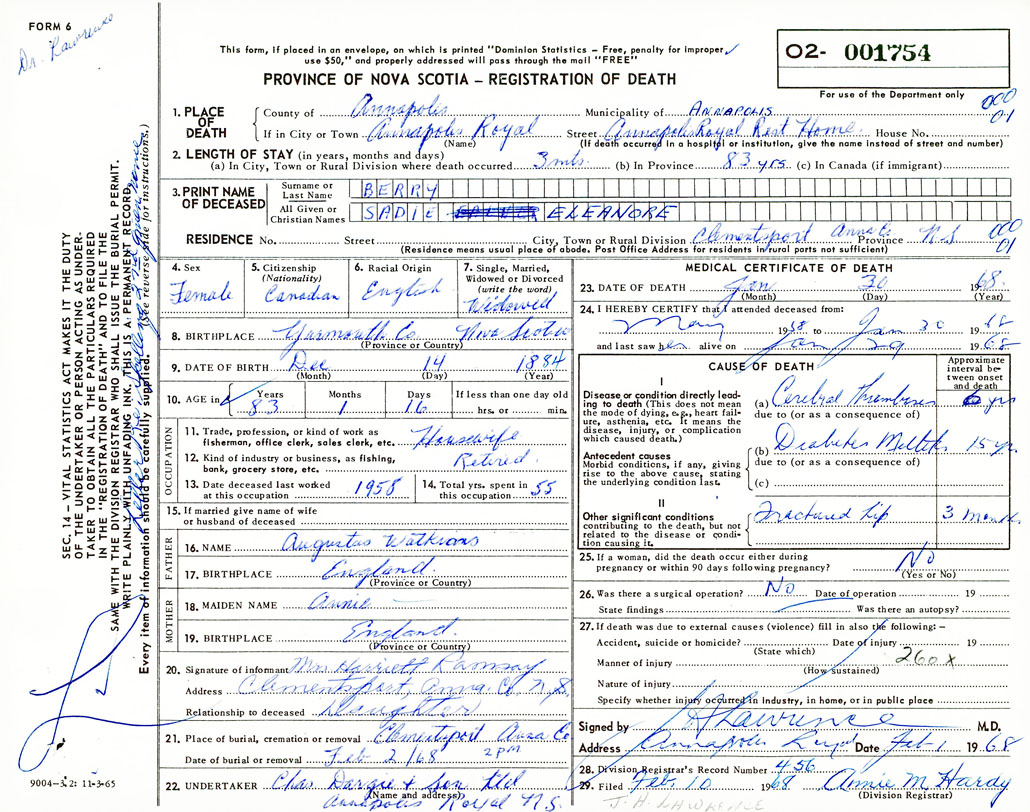 FORM 6
Dr. Lawrence
This form, if placed in an envelope, on which is printed "Dominion Statistics – Free, penalty for improper
use $50," and properly addressed will pass through the mail "FREE"
PROVINCE OF NOVA SCOTIA – REGISTRATION OF DEATH
02- 001754
For use of the Department only
000
01
1. PLACE OF DEATH
County of Annapolis Municipality of ANNAPOLIS
If in City or Town Annapolis Royal Street Annapolis Royal Rest Home House No.
(Name) (If death occurred in a hospital or institution, give the name instead of street and number)
2. LENGTH OF STAY (in years, months and days)
(a) In City, Town or Rural Division where death occurred 3 mts. (b) In Province 83 yrs. (c) In Canada (if immigrant)
3. PRINT NAME OF DECEASED
Surname or Last Name BERRY
All Given or Christian Names SADIE ELEANORE
RESIDENCE No. Street City, Town or Rural Division Clementsport Anna Co. Province N.S.
(Residence means usual place of abode. Post Office Address for residents in rural parts not sufficient)
000
01
4. Sex
Female
5. Citizenship
(Nationality)
Canadian
6. Racial Origin
English
7. Single, Married,
Widowed or Divorced
(write the word)
Widowed
8. BIRTHPLACE Yarmouth Co. Nova Scotia
(Province or Country)
9. DATE OF BIRTH Dec 14 1884
(Month) (Day) (Year)
10. AGE in Years Months Days If less than one day old
83 1 16 hrs. or min.
OCCUPATION
11. Trade, profession or kind of work as
fisherman, office clerk, sales clerk, etc. Housewife
12. Kind of industry or business, as fishing,
bank, grocery store, etc. Retired.
13. Date deceased last worked
at this occupation 1958
14. Total yrs. spent in
this occupation 55
15. If married give name of wife
or husband of deceased
FATHER
16. NAME Augustas Watkins
17. BIRTHPLACE England.
(Province or Country)
MOTHER
18. MAIDEN NAME Annie —
19. BIRTHPLACE England.
(Province or Country)
20. Signature of informant Mrs Harriett Ramsay
Address Clementsport, Anna. Co. N.S.
Relationship to deceased Daughter
21. Place of burial, cremation or removal Clementsport Anna Co
Date of burial or removal Feb 2/68 2 PM
22. UNDERTAKER Chas Dargie & Son Ltd
(Name and address)
Annapolis Royal N.S.
MEDICAL CERTIFICATE OF DEATH
23. DATE OF DEATH Jan 30 1968.
(Month) (Day) (Year)
24. I HEREBY CERTIFY that I attended deceased from:
1968 to Jan 30 1968
and last saw her alive on Jan 29 1968
CAUSE OF DEATH
Approximate
interval be-
tween onset
and death
I
Disease or condition directly lead-
ing to death (This does not mean
the mode of dying, e.g., heart fail-
ure, asthenia, etc. It means the
disease, injury, or complication
which caused death.)
(a) Cerebral Thrombosis 6 yrs
due to (or as a consequence of)
Antecedent causes
Morbid conditions, if any, giving
rise to the above cause, stating
the underlying condition last.
(b) Diabetes Mellitus 15 yrs
due to (or as a consequence of)
(c)
II
Other significant conditions
contributing to the death, but not
related to the disease or condi-
tion causing it.
Fractured hip 3 months
25. If a woman, did the death occur either during
pregnancy or within 90 days following pregnancy? No
(Yes or No)
26. Was there a surgical operation? No Date of operation 19
State findings Was there an autopsy?
27. If death was due to external causes (violence) fill in also the following: –
Accident, suicide or homicide? Date of injury 19
(State which)
Manner of injury 260 x
(How sustained)
Nature of injury
Specify whether injury occurred in Industry, in home, or in public place
Signed by Lawrence M.D.
Address Annapolis Royal Date Feb 1 1968
28. Division Registrar's Record Number 456
29. Filed Feb 10 1968 Annie M. Hardy
(Division Registrar)
J. H. LAWRENCE
SEC. 14 – VITAL STATISTICS ACT MAKES IT THE DUTY
OF THE UNDERTAKER OR PERSON ACTING AS UNDER-
TAKER TO OBTAIN ALL THE PARTICULARS REQUIRED
IN THE "REGISTRATION OF DEATH" AND TO FILE THE
SAME WITH THE DIVISION REGISTRAR WHO SHALL ISSUE THE BURIAL PERMIT.
WRITE PLAINLY WITH UNFADING INK. THIS IS A PERMANENT RECORD.
Every item of information should be carefully supplied. (See reverse side for instructions.)
9004-3.2: 11-3-65